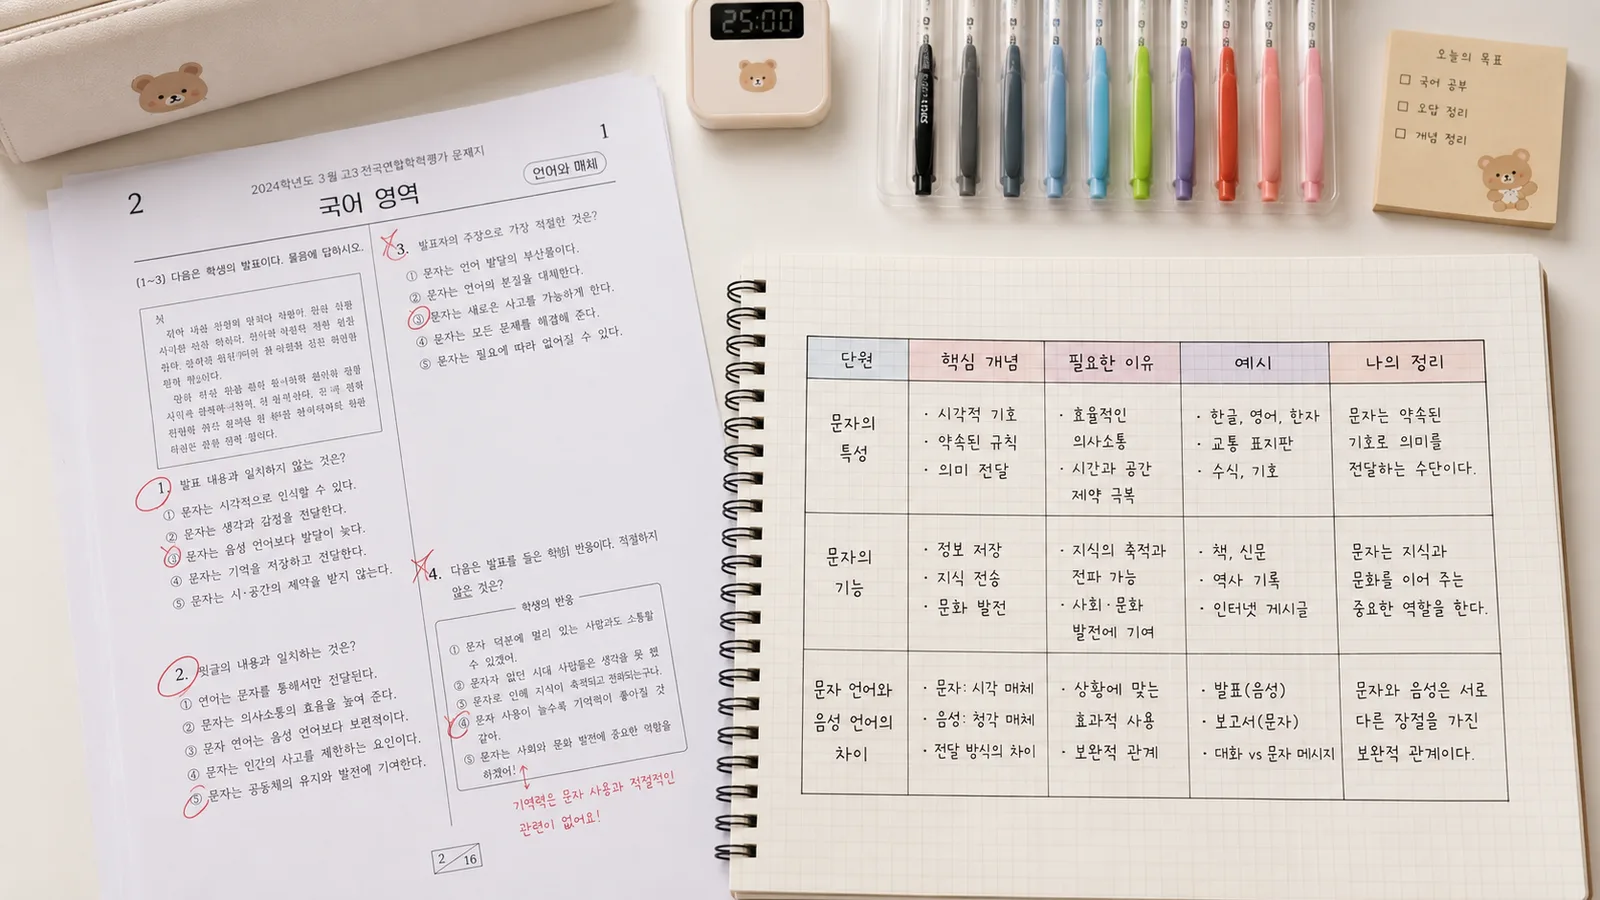 25:00
오늘의 목표
국어 공부
오답 정리
개념 정리
2
1
2024학년도 3월 고3 전국연합학력평가 문제지
언어와 매체
국어 영역
[1~3] 다음은 학생의 발표이다. 물음에 답하시오.
1. 발표 내용과 일치하지 않는 것은?
① 문자는 시각적으로 인식할 수 있다.
② 문자는 생각과 감정을 전달한다.
③ 문자는 음성 언어보다 발달이 늦다.
④ 문자는 기억을 저장하고 전달한다.
⑤ 문자는 시·공간의 제약을 받지 않는다.
2. 윗글의 내용과 일치하는 것은?
① 언어는 문자를 통해서만 전달된다.
② 문자는 의사소통의 효율을 높여 준다.
③ 문자 언어는 음성 언어보다 보편적이다.
④ 문자는 인간의 사고를 제한하는 요인이다.
⑤ 문자는 공동체의 유지와 발전에 기여한다.
3. 발표자의 주장으로 가장 적절한 것은?
① 문자는 언어 발달의 부산물이다.
② 문자는 언어의 본질을 대체한다.
③ 문자는 새로운 사고를 가능하게 한다.
④ 문자는 모든 문제를 해결해 준다.
⑤ 문자는 필요에 따라 없어질 수 있다.
4. 다음은 발표를 들은 반응이다. 적절하지
않은 것은?
학생의 반응
① 문자 덕분에 멀리 있는 소통할
수 있겠어.
② 문자가 없던 시대 사람들은 생각을 못 했
⑤ 문자로 인해 지식이 축적되고
④ 문자 사용이 늘수록 기억력이 좋아질 것
같아.
⑤ 문자는 사회와 문화 발전에 중요한 역할을
하겠어!
기억력은 문자 사용과 적절적인
관련이 없어요!
2 16
단원 핵심 개념 필요한 이유 예시 나의 정리
문자의
특성
· 시각적 기호
· 약속된 규칙
· 의미 전달
· 효율적인
의사소통
· 시간과 공간
제약 극복
· 한글, 영어, 한자
· 교통 표지판
· 수식, 기호
문자는 약속된
기호로 의미를
전달하는 수단이다.
문자의
기능
· 정보 저장
· 지식 전송
· 문화 발전
· 지식의 축적과
전파 가능
· 사회·문화
발전에 기여
· 책, 신문
· 역사 기록
· 인터넷 게시글
문자는 지식과
문화를 이어 주는
중요한 역할을 한다.
문자 언어와
음성 언어의
차이
· 문자: 시각 매체
· 음성: 청각 매체
· 전달 방식의 차이
· 상황에 맞는
효과적 사용
· 보완적 관계
· 발표(음성)
· 보고서(문자)
· 대화 vs 문자 메시지
문자와 음성은 서로
다른 장점을 가진
보완적 관계이다.